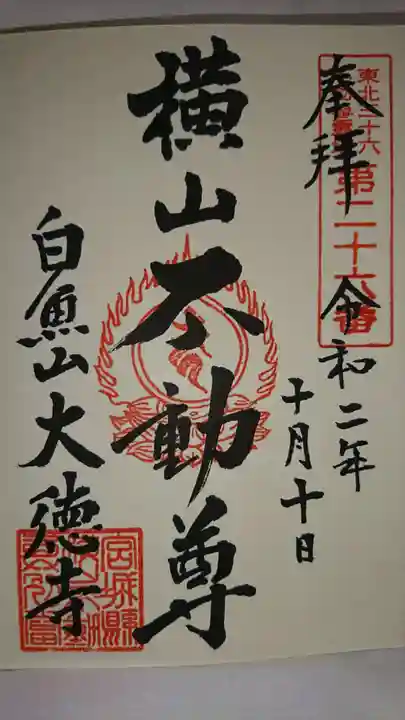 奉拝
東北三十六
第二十六番
令和二年
十月十日
横山不動尊
白魚山大徳寺
宮城縣